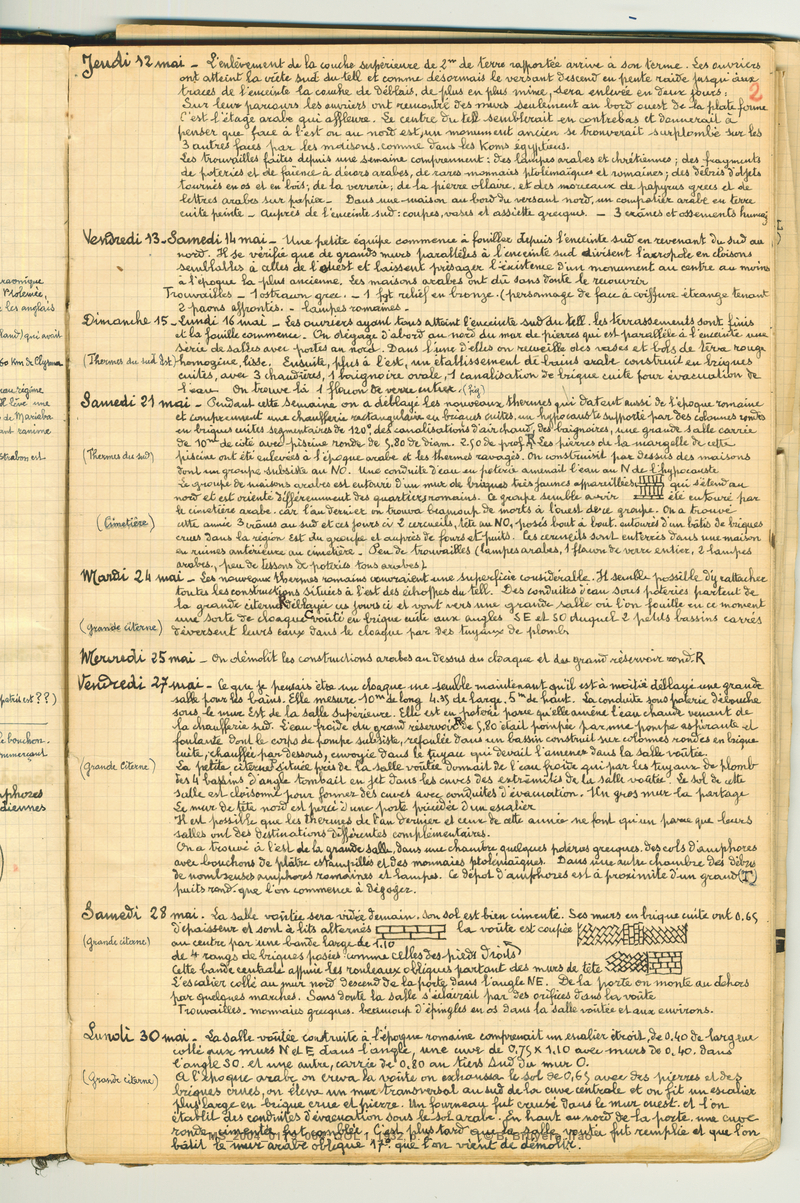 Jeudi 12 mai – L'enlèvement de la couche supérieure de 2m de terre rapportée arrive à son terme. Les ouvriers
ont atteint la crête sud du tell et comme désormais le versant descend en pente raide jusqu'aux
traces de l'enceinte la couche de déblais, de plus en plus mince, sera enlevée en deux jours.
2
Sur leur parcours les ouvriers ont rencontré des murs seulement au bord ouest de la plate forme
C'est l'étage arabe qui affleure. Le centre du tell semblerait en contrebas et donnerait à
penser que face à l'est ou au nord est, un monument ancien se trouverait surplombé sur les
3 autres faces par les maisons, comme dans les Koms égyptiens.
Les trouvailles faites depuis une semaine comprennent : des lampes arabes et chrétiennes ; des fragments
de poteries et de faïence à décors arabes, de rares monnaies ptolémaïques et romaines ; des débris d'objets
tournés en os et en bois ; de la verrerie ; de la pierre ollaire, et des morceaux de papyrus grecs et de
lettres arabes sur papier – Dans une maison au bord du versant nord, un compotier arabe en terre
cuite peinte – Auprès de l'enceinte sud : coupes, vases et assiette grecques. – 3 crânes et ossements
Vendredi 13 – Samedi 14 mai – Une petite équipe commence à fouiller depuis l'enceinte sud en revenant du sud au
nord. Il se vérifie que de grands murs parallèles à l'enceinte sud divisent l'acropole en cloisons
semblables à celles de l'Ouest et laissent présager l'existence d'un monument au centre au moins
à l'époque la plus ancienne. Les maisons arabes ont dû sans doute le recouvrir
Trouvailles – 1 ostracon grec. – 1 fgt relief en bronze. (personnage de face à coiffure étrange tenant
2 paons affrontés. – lampes romaines –
Dimanche 15 – Lundi 16 mai – Les ouvriers ayant tous atteint l'enceinte sud du tell, les terrassements sont finis
et la fouille commence. On dégage d'abord au nord du mur de pierres qui est parallèle à l'enceinte une
série de salles avec portes au nord. Dans l'une d'elles on recueille des vases et bols de terre rouge
(Thermes du sud Est) homogène, lisse. Ensuite, plus à l'est, un établissement de bains arabe construit en briques
cuites, avec 3 chaudières, 1 baignoire ovale, 1 canalisation de brique cuite pour évacuation de
l'eau – On trouve là 1 flacon de verre entier. (fig)
Samedi 21 mai – Pendant cette semaine on a déblayé les nouveaux thermes qui datent aussi de l'époque romaine
et comprennent une chaufferie rectangulaire en briques cuites, un hypocauste supporté par des colonnes rondes
en briques cuites segmentaires de 120°, des canalisations d'air chaud, des baignoires, une grande salle carrée
de 10m de côté avec piscine ronde de 5,80 de diam. 2,50 de prof. Les pierres de la margelle de cette
(Thermes du sud) piscine ont été enlevées à l'époque arabe et les thermes ravagés. On construisit par dessus des maisons
dont un groupe subsiste au NO. Une conduite d'eau en poterie amenait l'eau au N de l'hypocauste
Le groupe de maisons arabes est entouré d'un mur de briques très jaunes appareillées qui s'étend au
nord et est orienté différemment des quartiers romains. Ce groupe semble avoir été entouré par
le cimetière arabe. car l'an dernier on trouva beaucoup de morts à l'ouest de ce groupe. On a trouvé
(Cimetière) cette année 3 crânes au sud et ces jours ci 2 cercueils, tête au NO, posés bout à bout, entourés d'un bâtis de briques
crues dans la région Est du groupe et auprès de fours et puits. Les cercueils sont enterrés dans une maison
en ruines antérieure au cimetière – Peu de trouvailles (lampes arabes, 1 flacon de verre entier, 2 lampes
arabes, peu de tessons de poteries tous arabes)
Mardi 24 mai – Les nouveaux thermes romains couvraient une superficie considérable. Il semble possible d'y rattacher
toutes les constructions situées à l'est des échoppes du tell. Des conduites d'eau sous poteries partent de
la grande citerne déblayée ces jours ci et vont vers une grande salle où l'on fouille en ce moment
(Grande citerne) une sorte de cloaque voûté en brique cuite aux angles SE et SO duquel 2 petits bassins carrés
déversent leurs eaux dans le cloaque par des tuyaux de plomb
Mercredi 25 mai – On démolit les constructions arabes au dessus du cloaque et du grand réservoir rond. R
Vendredi 27 mai – Ce que je pensais être un cloaque me semble maintenant qu'il est à moitié déblayé une grande
salle pour les bains. Elle mesure 10m de long 4.35 de large, 5m de haut. La conduite sous poterie débouche
sous le mur Est de la salle supérieure. Elle est en poterie parce qu'elle amène l'eau chaude venant de
la chaufferie sud. L'eau froide du grand réservoir de 5,80 était pompée par une pompe aspirante et
foulante dont le corps de pompe subsiste, refoulée dans un bassin construit sur colonnes rondes en brique
cuite, chauffée par dessous, envoyée dans le tuyau qui devait l'amener dans la salle voûtée.
(Grande citerne) La petite citerne située près de la salle voûtée donnait de l'eau froide qui par les tuyaux de plomb
des 4 bassins d'angle tombait en jet dans les cuves des extrémités de la salle voûtée. Le sol de cette
salle est cloisonné pour former des cuves avec conduites d'évacuation. Un gros mur la partage
Le mur de tête nord est percé d'une porte précédée d'un escalier
Il est possible que les thermes de l'an dernier et ceux de cette année ne font qu'un parce que leurs
salles ont des destinations différentes complémentaires.
On a trouvé à l'est de la grande salle, dans une chambre quelques poteries grecques, des cols d'amphores
avec bouchons de plâtre estampillés et des monnaies ptolémaïques. Dans une autre chambre des débris
de nombreuses amphores romaines et lampes. Ce dépôt d'amphores est à proximité d'un grand (I)
puits rond que l'on commence à dégager.
Samedi 28 mai. La salle voûtée sera vidée demain. Son sol est bien cimenté. Ses murs en brique cuite ont 0.65
d'épaisseur et sont à lits alternés la voûte est coupée
(Grande citerne) au centre par une bande large de 1.10
de 4 rangs de briques posées comme celles des pieds droits
Cette bande centrale appuie les rouleaux obliques partant des murs de tête
L'escalier collé au mur nord descend de la porte dans l'angle NE. De la porte on monte au dehors
par quelques marches. Sans doute la salle s'éclairait par des orifices dans la voûte
Trouvailles. monnaies grecques. beaucoup d'épingles en os dans la salle voûtée et aux environs.
Lundi 30 mai – La salle voûtée construite à l'époque romaine comprenait un escalier étroit, de 0,40 de largeur
collé aux murs N et E dans l'angle, une cuve de 0,75 x 1,10 avec murs de 0,40. dans
l'angle SO. et une autre, carrée de 0,80 au tiers Sud du mur O.
(Grande citerne) A l'époque arabe on creva la voûte on exhaussa le sol de 0,65 avec des pierres et des
briques crues, on éleva un mur transversal au sud de la cuve centrale et on fit un escalier
plus large en brique crue et pierre. Un fourneau fut creusé dans le mur ouest. et l'on
établit des conduites d'évacuation sous le sol arabe. En haut au nord de la porte une cuve
ronde cimentée fut comblée. C'est plus tard que la salle voûtée fut remplie et que l'on
bâtit le mur arabe oblique 17° que l'on vient de démolir.